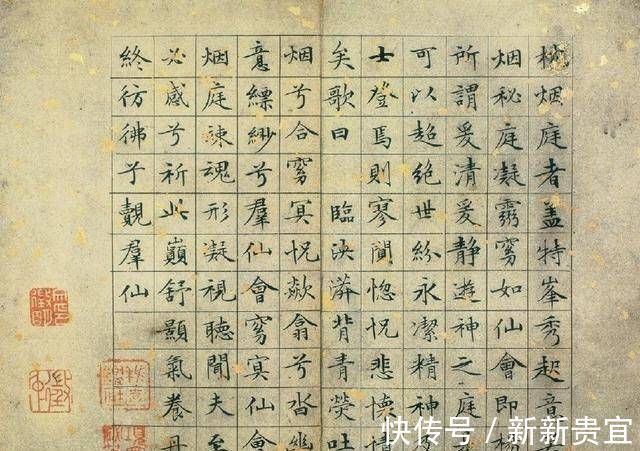 枕烟庭者盖特峯秀起
烟秘庭凝霛窅如仙會即
所謂爰清爰静遊神之庭
可以超絕世紛永潔精神
士登焉則寥闃惚怳悲懷
矣歌曰 臨泱漭背青熒吐
烟兮合窅冥怳歘翕兮沓幽
意縹緲兮羣仙會窅冥仙會
烟庭竦魂形凝視聽聞夫至
必感兮祈此巔舒顥氣養丹
終彷彿乎覿羣仙
快传号 / 新新贵宜